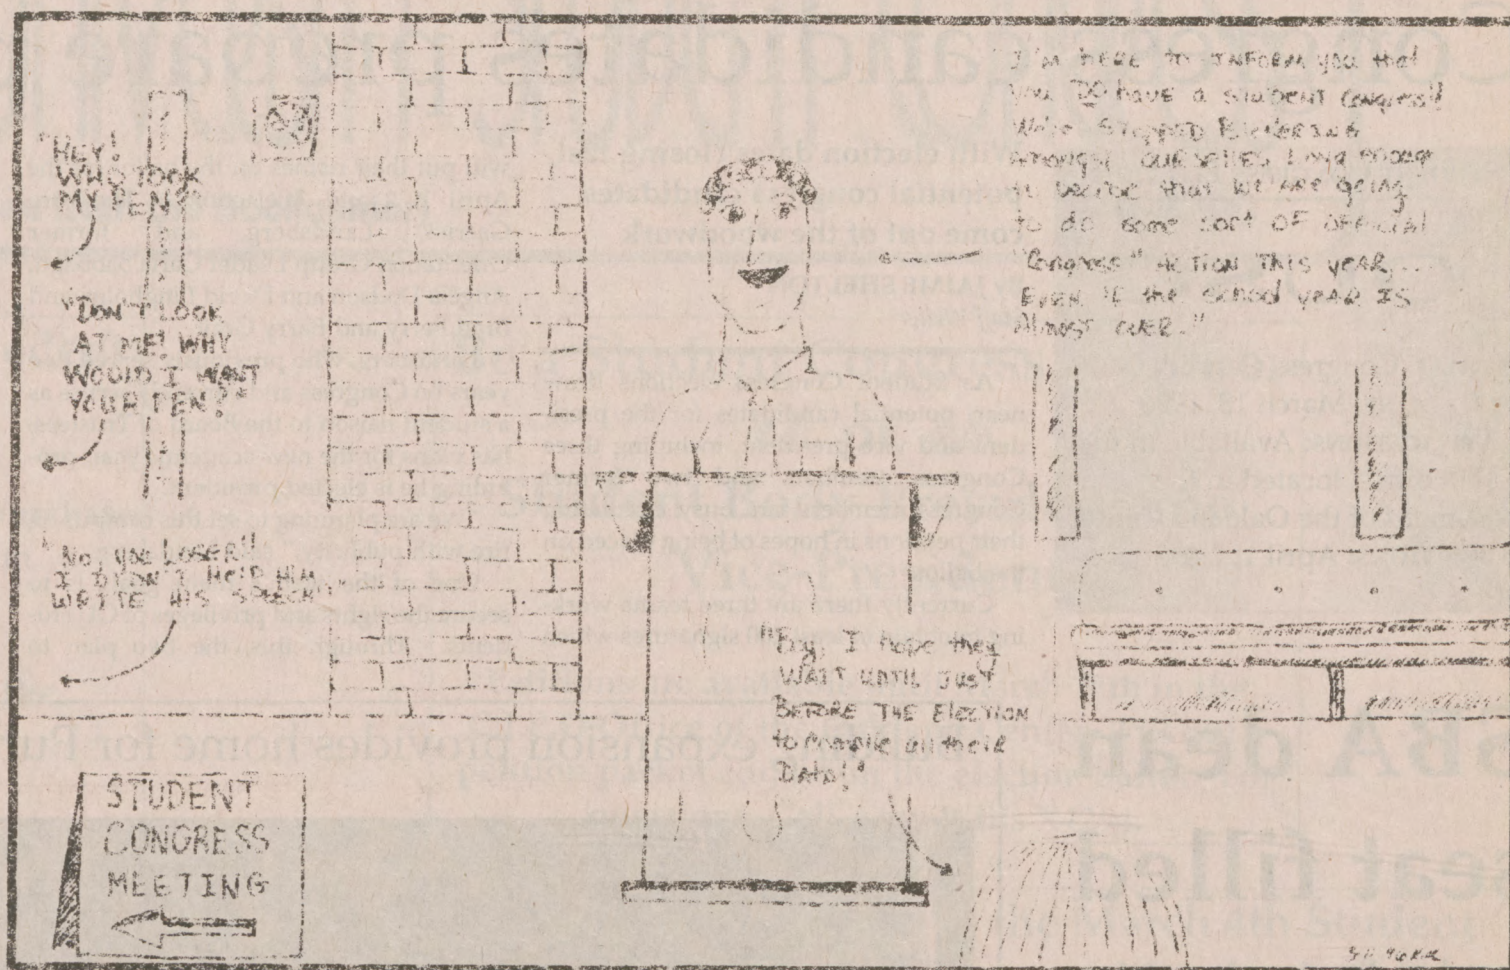 "HEY!
WHO TOOK
MY PEN?"
"DON'T LOOK
AT ME! WHY
WOULD I WANT
YOUR PEN?"
"No, you LOSER!!
I DIDN'T HELP HIM
WRITE HIS SPEECH"
STUDENT
CONGRESS
MEETING
"I'm HERE to INFORM you that
you DO have a STUDENT Congress!!
We've STOPPED BICKERING
amongst OURSELVES Long enough
to DECIDE that WE ARE going
to do some sort OF OFFICIAL
"Congress" ACTION THIS YEAR...
EVEN IF the school YEAR IS
Almost OVER."
"Boy, I hope they
WAIT UNTIL JUST
BEFORE THE ELECTION
to compile all their
Data!"